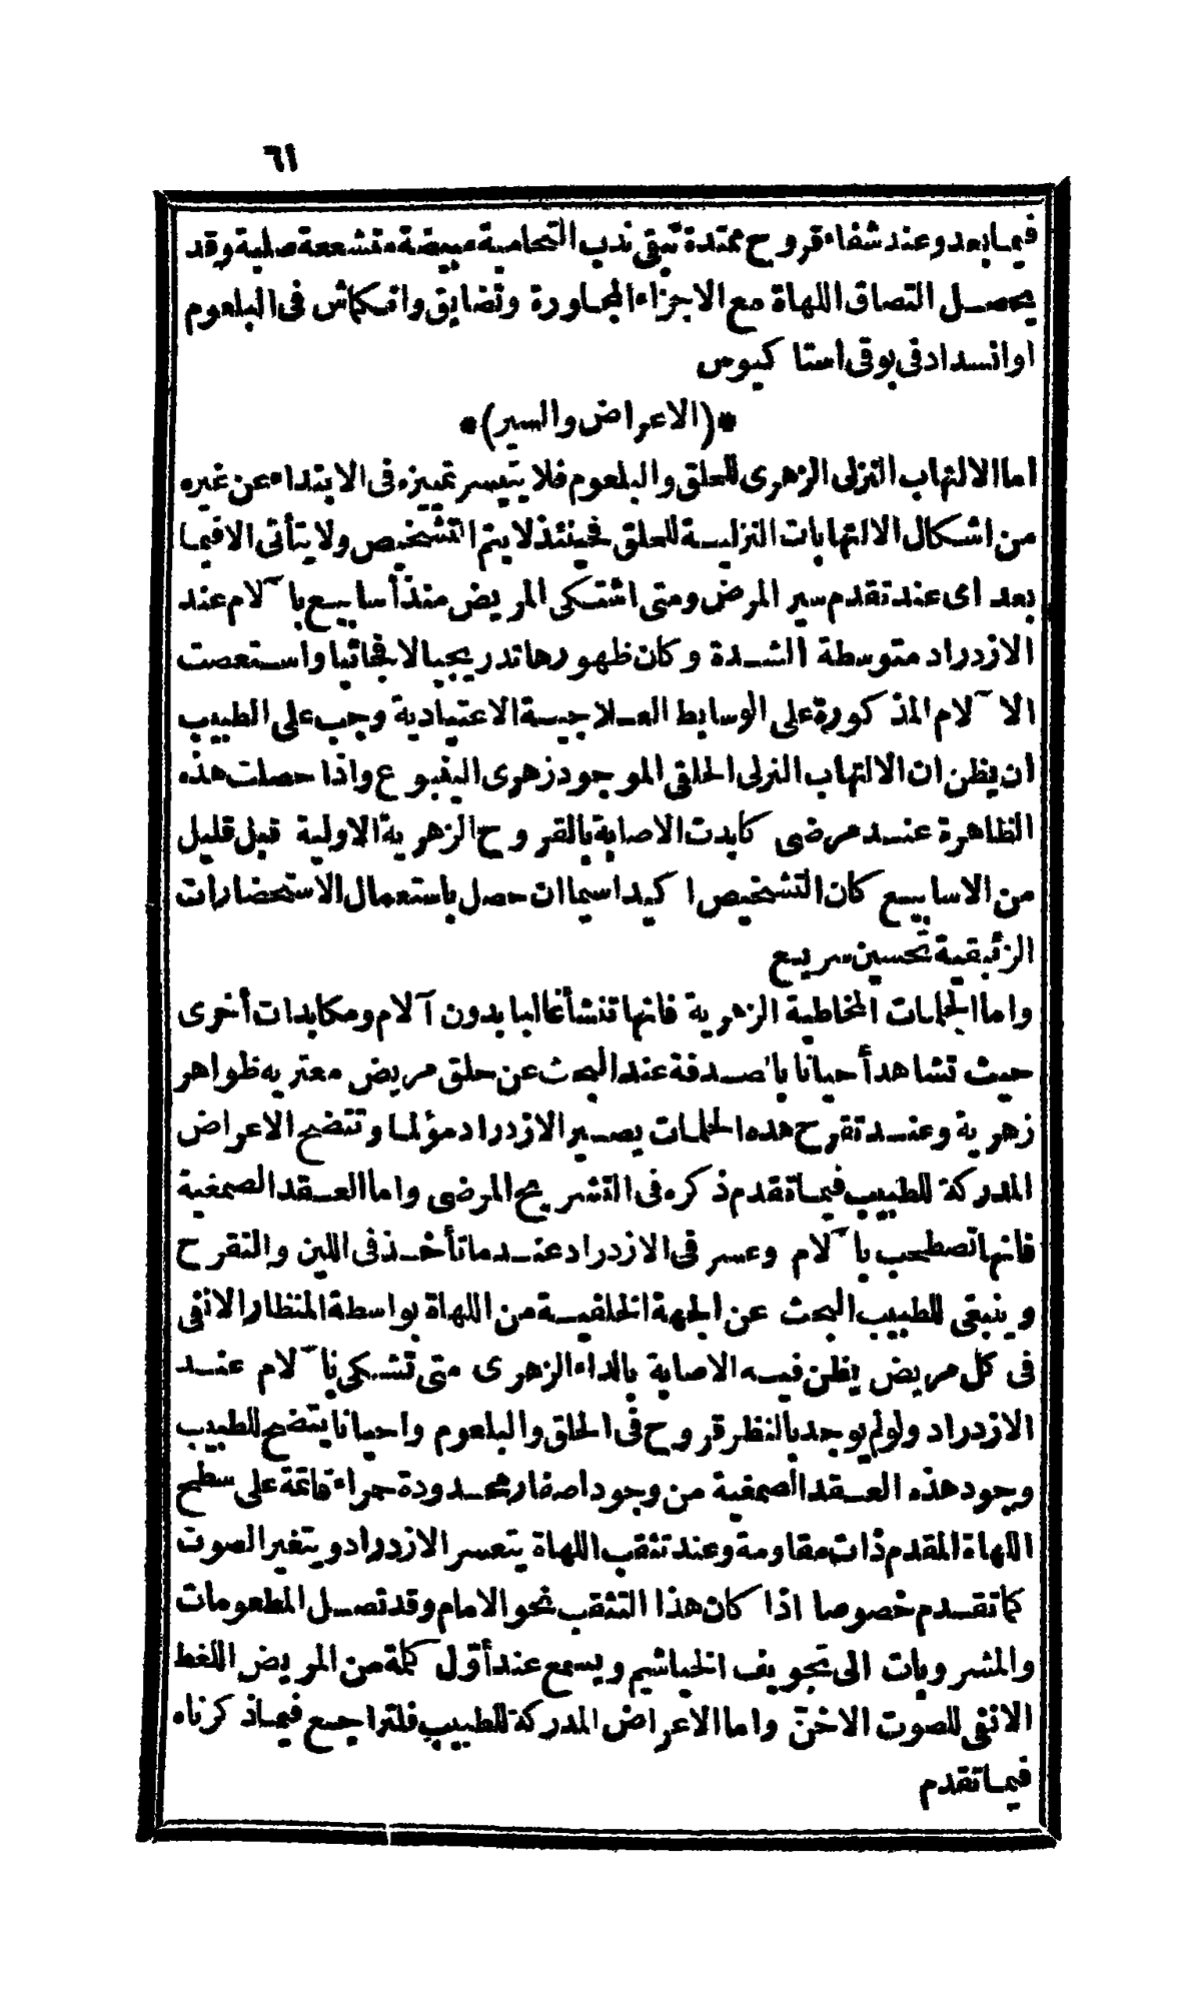 ٦١
فيما بعد وعند شفاء قروح ممتدة تبقى ندب التحامية مبيضة متشععة صلبة وقد
يحصل التصاق اللهاة مع الاجزاء المجاورة وتضايق وانكماش فى البلعوم
او انسداد فى بوقى استا كيوس
*(الاعراض والسير)*
اما الالتهاب النزلى الزهرى للحلق والبلعوم فلا يتيسر تمييزه فى الابتداء عن غيره
من اشكال الالتهابات النزلية للحلق فحينئذ لا يتم التشخيص ولا يتأتى الا فيما
بعد اى عند تقدم سير المرض ومتى اشتكى المريض منذ أسابيع با ٓلام عند
الازدراد متوسطة الشدة وكان ظهورها تدريجيا لا فجائيا واستعصت
الا ٓلام المذكورة على الوسايط العلاجية الاعتيادية وجب على الطبيب
ان يظن ان الالتهاب النزلى الحلقى الموجود زهرى الينبوع واذا حصلت هذه
الظاهرة عند مرضى كابدت الاصابة بالقروح الزهرية الاولية قبل قليل
من الاسابيع كان التشخيص اكيدا سيما ان حصل باستعمال الاستحضارات
الزئبقية تحسين سريع
واما الحلمات المخاطية الزهرية فانها تنشأ غالبا بدون آلام ومكابدات أخرى
حيث تشاهد أحيانا بالصدفة عند البحث عن حلق مريض معتريه ظواهر
زهرية وعند تقرح هذه الحلمات يصير الازدراد مؤلما وتتضح الاعراض
المدركة للطبيب فيما تقدم ذكره فى التشريح المرضى واما العقد الصمغية
فانها تصطحب با ٓلام وعسر فى الازدراد عند ما تأخذ فى اللين والتقرح
وينبغى للطبيب البحث عن الجهة الخلفية من اللهاة بواسطة المنظار الانفى
فى كل مريض يظن فيه الاصابة بالداء الزهرى متى تشكى با ٓلام عند
الازدراد ولو لم يوجد بالنظر قروح فى الحلق والبلعوم واحيانا يتضح للطبيب
وجود هذه العقد الصمغية من وجود اصفار محدودة حمراء قاتمة على سطح
اللهاة المقدم ذات مقاومة وعند تثقب اللهاة يتعسر الازدراد ويتغير الصوت
كما تقدم خصوصا اذا كان هذا التثقب نحو الامام وقد تصل المطعومات
والمشروبات الى تجويف الخياشيم ويسمع عند أول كلمة من المريض اللغط
الانفى للصوت الاخنّ واما الاعراض المدركة للطبيب فلتراجع فيما ذكرناه
فيما تقدم